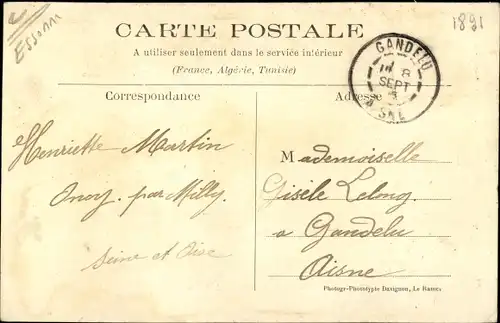 Essonne
1891
CARTE POSTALE
A utiliser seulement dans le service intérieur
(France, Algérie, Tunisie)
GANDELU
8
SEPT
AISNE
Correspondance
Adresse
Henriette Martin
Oncy par Milly
Seine et Oise
Mademoiselle
Gisèle Lelong
a Gandelu
Aisne
Photogr-Phototypie Davignon, Le Raincy